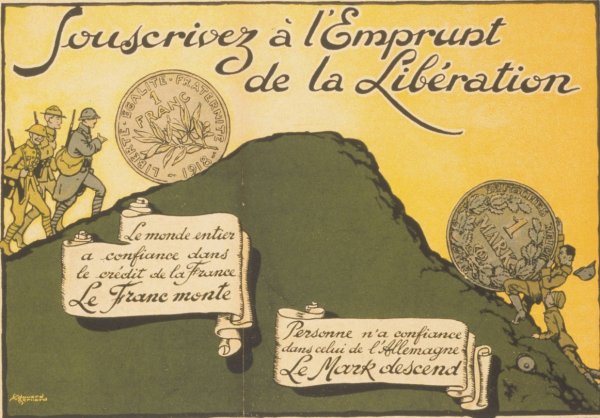 Souscrivez à l'Emprunt
de la Libération
LIBERTE · EGALITE · FRATERNITE
1
FRANC
1918
Le monde entier
a confiance dans
le crédit de la France
Le Franc monte
1
MARK
Personne n'a confiance
dans celui de l'Allemagne
Le Mark descend
Edouard
Bernard